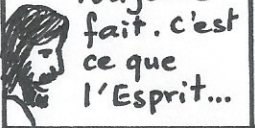 fait. c'est
ce que
l'Esprit...